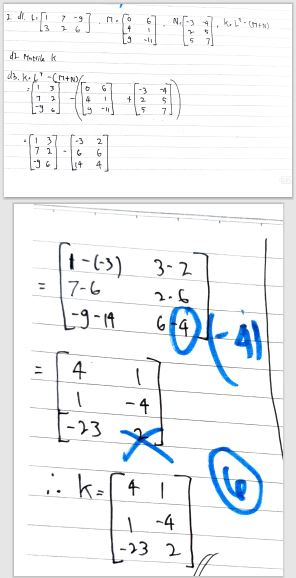 2. d1. L = [1 7 -9; 3 2 6], M = [0 6; 4 1; 9 -11], N = [-3 -4; 2 5; 5 7], k = Lᵗ - (M+N)
d2. Matrik k
d3. k = Lᵗ - (M+N)
= [1 3; 7 2; -9 6] - ([0 6; 4 1; 9 -11] + [-3 -4; 2 5; 5 7])
= [1 3; 7 2; -9 6] - [-3 2; 6 6; 14 4]
= [1-(-3) 3-2; 7-6 2-6; -9-14 6-4] (-4)
= [4 1; 1 -4; -23 2]
6
∴ k = [4 1; 1 -4; -23 2]